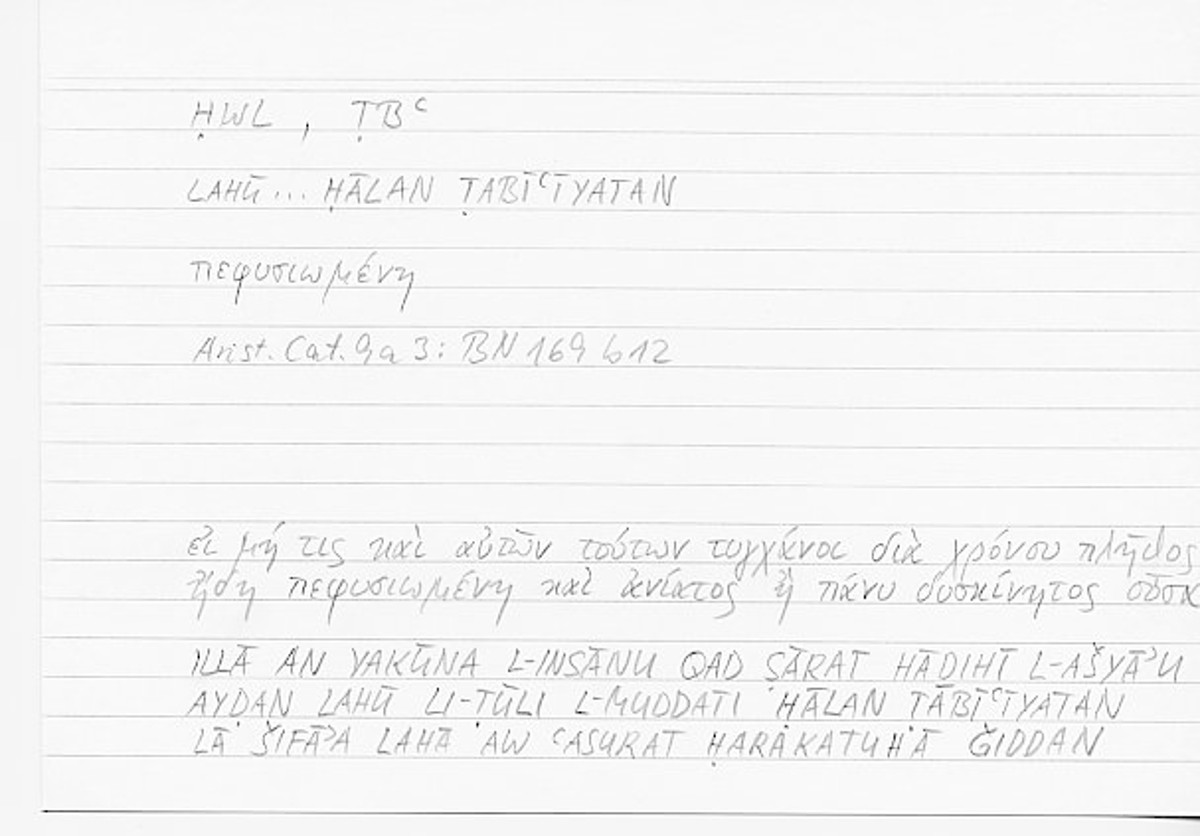 ḤWL, ṬBʿ
LAHŪ... ḤĀLAN ṬABĪʿĪYATAN
πεφυσιωμένη
Arist. Cat. 9a 3: BN 169 b12
εἰ μή τις καὶ αὐτῶν τούτων τυγχάνοι διὰ χρόνου πλῆθος
ἤδη πεφυσιωμένη καὶ ἀνίατος ἢ πάνυ δυσκίνητος οὖσα
ILLĀ AN YAKŪNA L-INSĀNU QAD ṢĀRAT HĀḎIHĪ L-AŠYĀʾU
AYḌAN LAHŪ LI-ṬŪLI L-MUDDATI ḤĀLAN ṬĀBĪʿĪYATAN
LĀ ŠIFĀʾA LAHĀ AW ʿASURAT ḤARAKATUHĀ ǦIDDAN